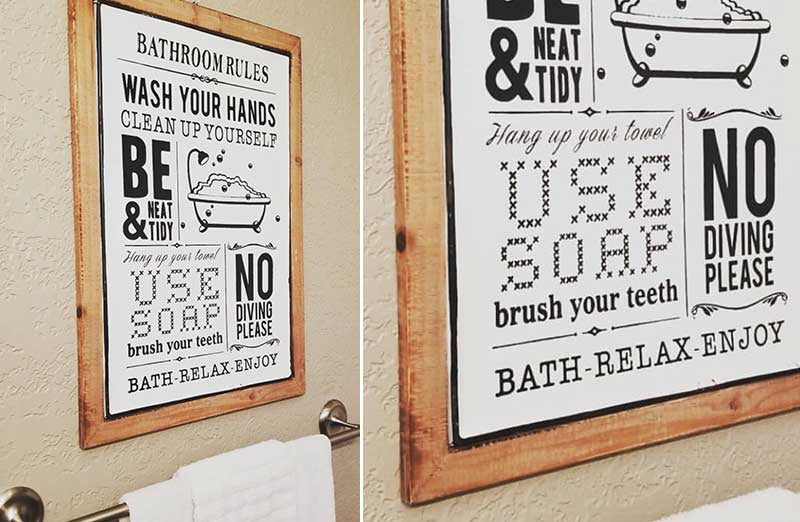 BATHROOM RULES
WASH YOUR HANDS
CLEAN UP YOURSELF
BE
& NEAT
TIDY
Hang up your towel
USE
SOAP
brush your teeth
NO
DIVING
PLEASE
BATH-RELAX-ENJOY
BE
& NEAT
TIDY
Hang up your towel
USE
SOAP
brush your teeth
NO
DIVING
PLEASE
BATH-RELAX-ENJOY